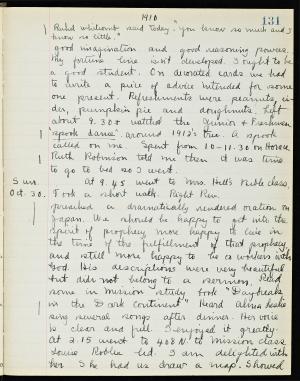 1910
131
Rachel whitmont said today. "you know so much and I
know so little."
good imagination and good reasoning powers.
My fortune line isn't developed. I ought to be
a good student. On decorated cards we had
to write a piece of advice intended for some
one present. Refreshments were peanuts, ci-
der, pumpkin pie and doughnuts. Left
about 9.30 & watched the Junior & Freshmen
"spook dance" around 1912's tree. A spook
called on me. Spent from 10-11.30 on Horace
Ruth Robinson told me then it was time
to go to bed so I went.
Sun. At 9.45 went to Mrs. Hell's Bible class,
Oct. 30. Took a short walk. Right Rev.
preached a dramatically rendered oration on
Japan. We should be happy to get into the
spirit of prophecy more happy to live in
the time of the fulfilment of that prophecy
and still more happy to be co workers with
God. His descriptions were very beautiful
but did not belong to a sermon. Read
some in mission study book "Daybreak
in the Dark Continent" Heard Alma
sing several songs after dinner. Her voice
is clear and full. I enjoyed it greatly.
At 2.15 went to 408 N to mission class
Louise Robles led. I am delighted with
her. She had us draw a map. Showed